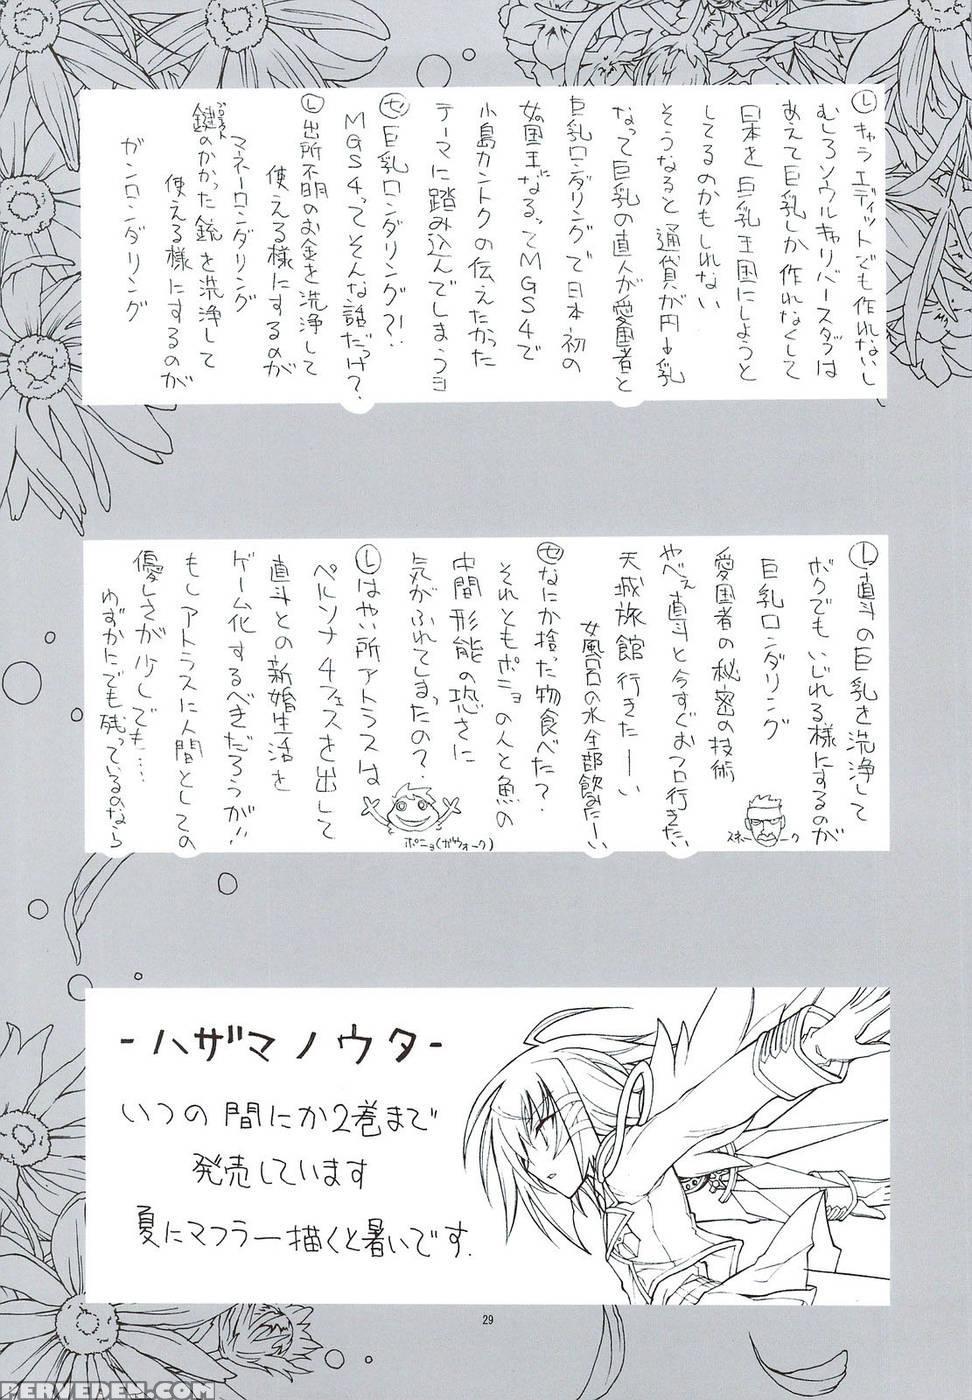 Ⓛキャラエディットでも作れないし
むしろソウルキャリバースタッフは
あえて巨乳しか作れなくして
日本を巨乳王国にしようと
してるのかもしれない
そうなると通貨が円→乳
なって巨乳の直人が愛国者と
巨乳ロンダリングで日本初の
女国王になるってMGS4で
小島カントクの伝えたかった
テーマに踏み込んでしまうヨ
㋝巨乳ロンダリング?!
MGS4ってそんな話だっけ?
Ⓛ出所不明のお金を洗浄して
使える様にするのが
マネーロンダリング
鍵のかかった銃を洗浄して
使える様にするのが
ガンロンダリング
Ⓛ直斗の巨乳を洗浄して
ボクでもいじれる様にするのが
巨乳ロンダリング
愛国者の秘密の技術
スネーーク
やべぇ直斗と今すぐおフロ行きたい
天城旅館行きたーい
女風呂の水全部飲みたーい
㋝なにか捨った物食べた?
それともポニョの人と魚の
中間形能の恐さに
気がふれてしまったの?
ポニョ(ガウォーク)
Ⓛはやい所アトラスは
ペルソナ4フェスを出して
直斗との新婚生活を
ゲーム化するべきだろうが!!
もしアトラスに人間としての
優しさが少しでも…
わずかにでも残っているのなら
-ハザマノウタ-
いつの間にか2巻まで
発売しています
夏にマフラー描くと暑いです.
29
PERVEDEN.COM